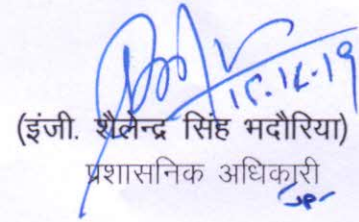 15.12.19
(इंजी. शैलेन्द्र सिंह भदौरिया)
प्रशासनिक अधिकारी